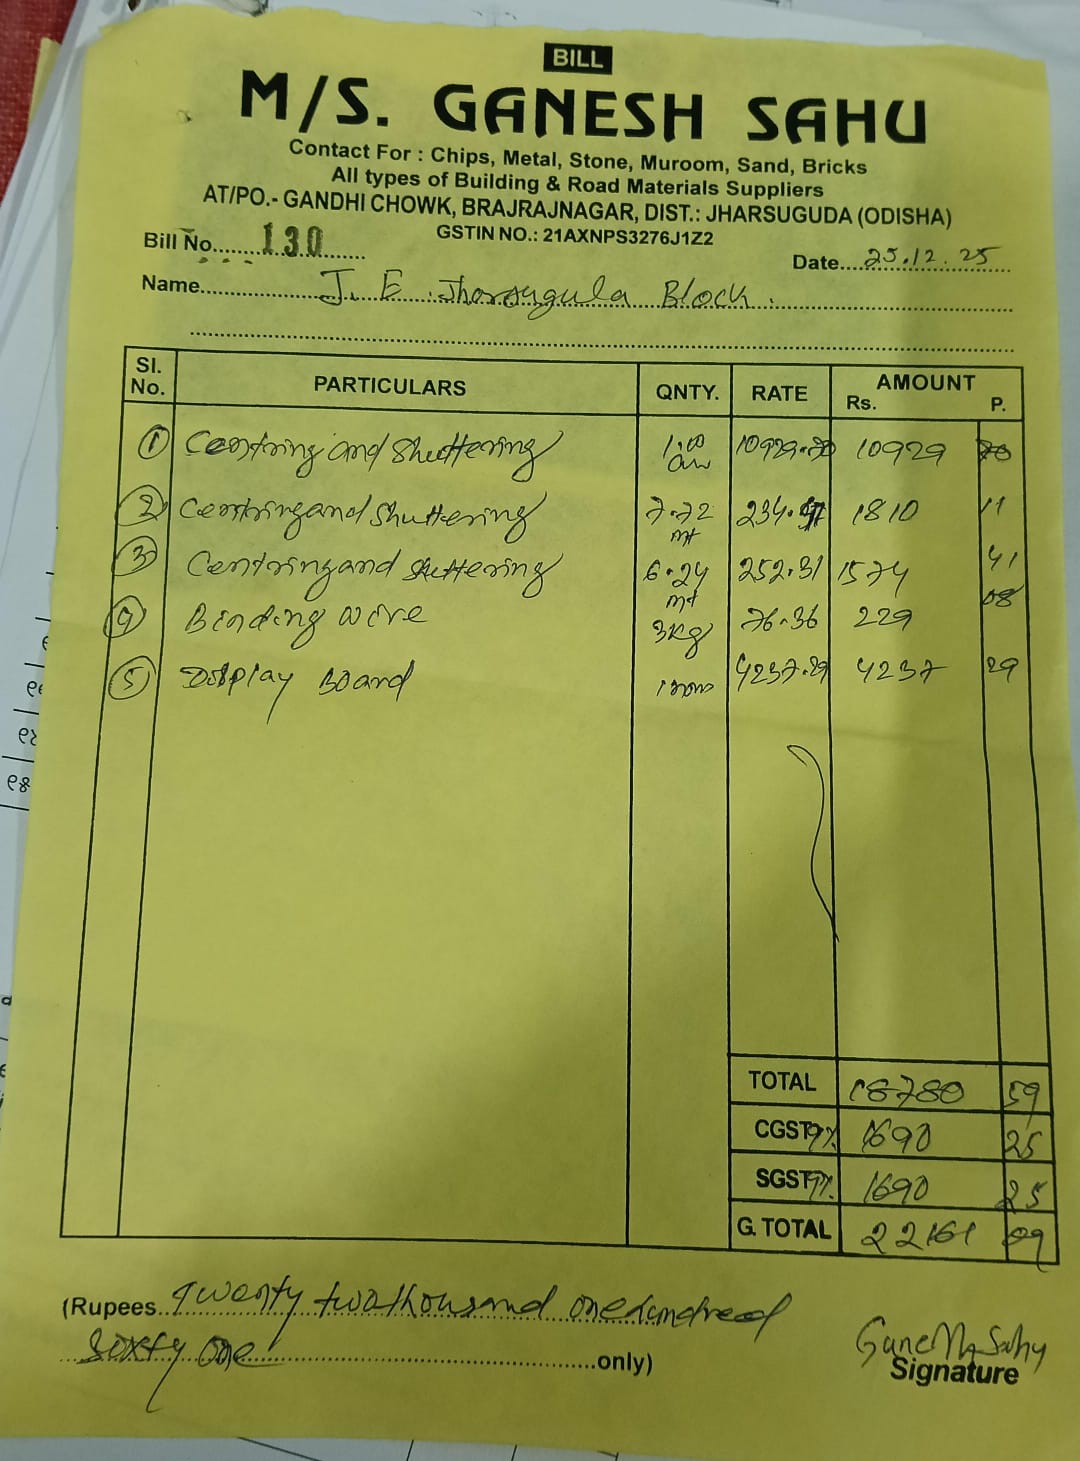 BILL
M/S. GANESH SAHU
Contact For : Chips, Metal, Stone, Muroom, Sand, Bricks
All types of Building & Road Materials Suppliers
AT/PO.- GANDHI CHOWK, BRAJRAJNAGAR, DIST.: JHARSUGUDA (ODISHA)
GSTIN NO.: 21AXNPS3276J1Z2
Bill No. 130 Date 25.12.25
Name J. E Jharsugula Block.
Sl. No. PARTICULARS QNTY. RATE AMOUNT Rs. P.
1 Centring and Shuttering 1.00 10929.70 10929 70
2 Centring and Shuttering 7.72 mt 234.47 1810 11
3 Centring and Shuttering 6.24 mt 252.31 1574 41
4 Binding wire 3kg 76.36 229 08
5 Display Board 1 4237.29 4237 29
TOTAL 18780 59
CGST 9% 1690 25
SGST 9% 1690 25
G. TOTAL 22161 09
(Rupees Twenty two thousand one hundred
Sixty one only)
Ganesh Sahu
Signature